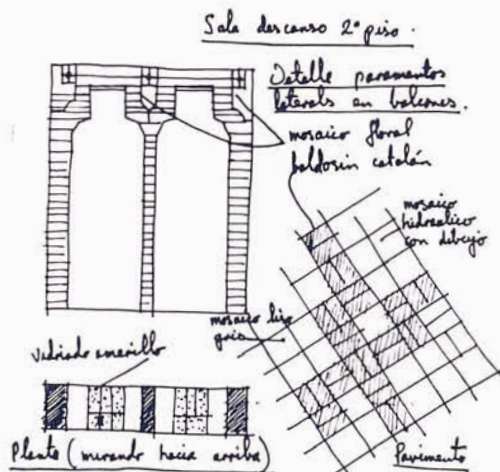 Sala descanso 2º piso.
Detalle paramentos
laterals en balcones.
mosaico floral
baldosin catalán
mosaico
hidraulico
con dibujo
mosaico liso
gris
vidriado amarillo
Planta (mirando hacia arriba)
Pavimento